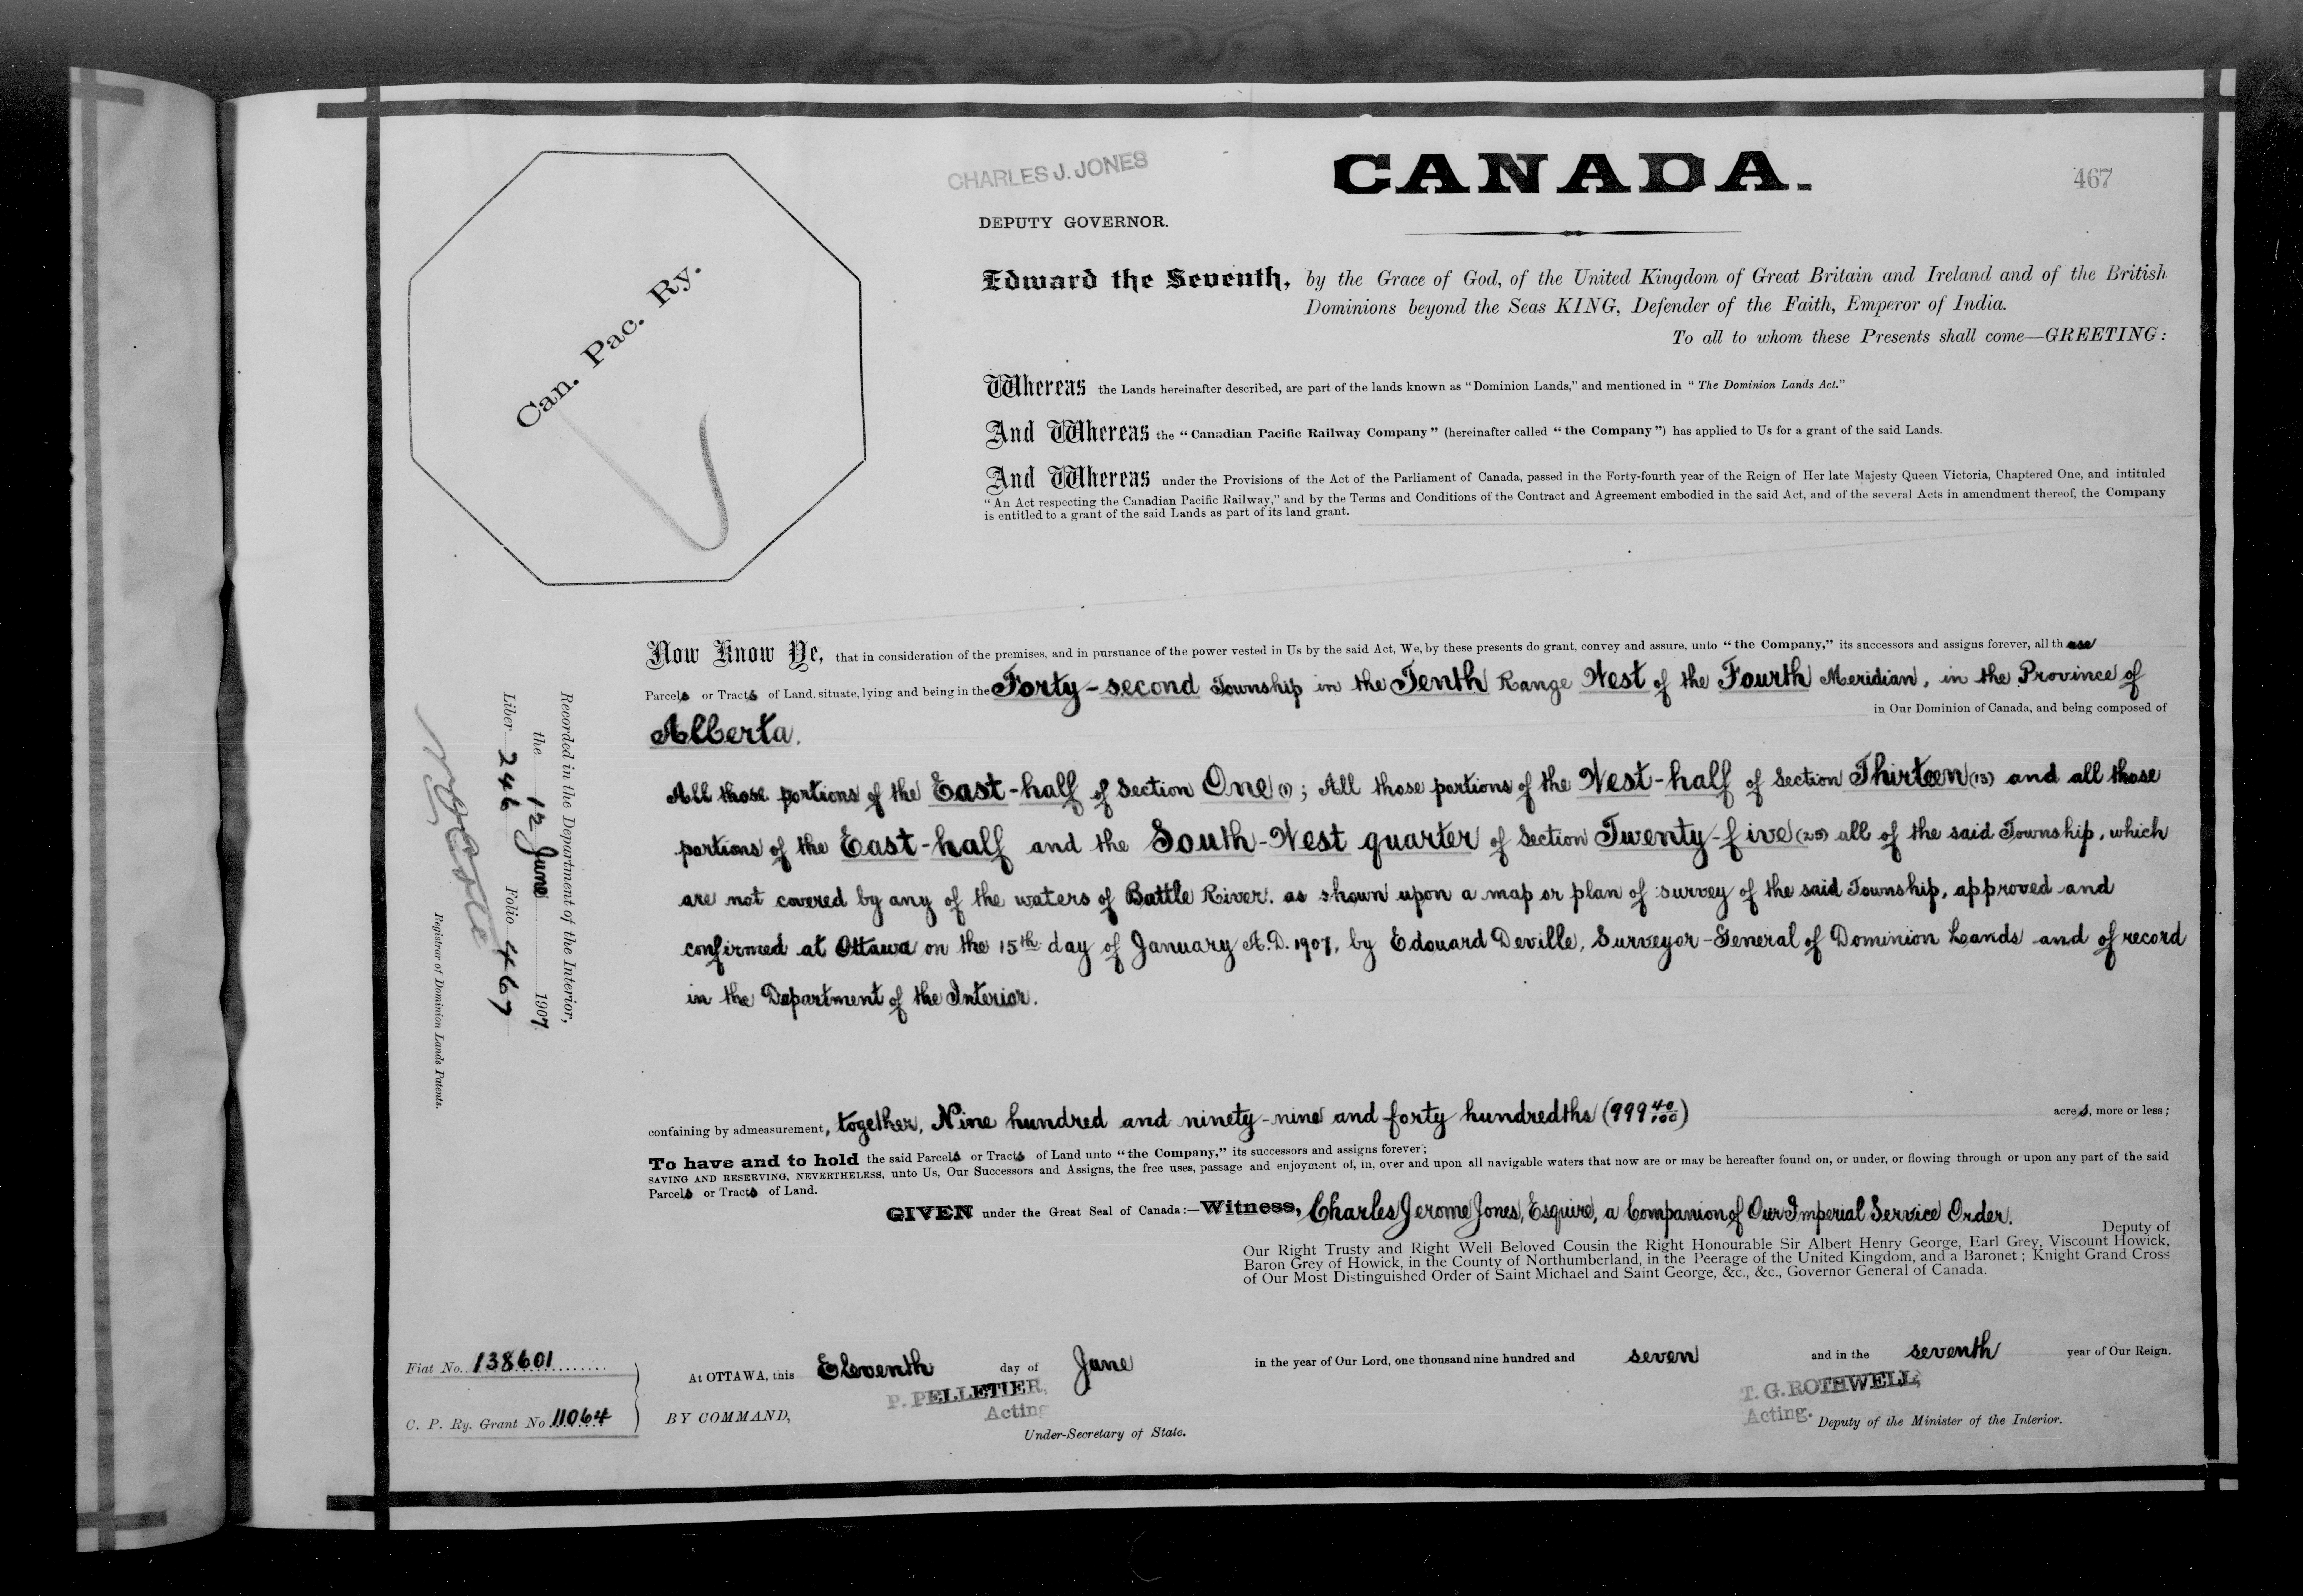 CHARLES J. JONES
CANADA.
467
DEPUTY GOVERNOR.
Can. Pac. Ry.
Edward the Seventh, by the Grace of God, of the United Kingdom of Great Britain and Ireland and of the British
Dominions beyond the Seas KING, Defender of the Faith, Emperor of India.
To all to whom these Presents shall come—GREETING:
Whereas the Lands hereinafter described, are part of the lands known as "Dominion Lands," and mentioned in "The Dominion Lands Act."
And Whereas the "Canadian Pacific Railway Company" (hereinafter called "the Company") has applied to Us for a grant of the said Lands.
And Whereas under the Provisions of the Act of the Parliament of Canada, passed in the Forty-fourth year of the Reign of Her late Majesty Queen Victoria, Chaptered One, and intituled
"An Act respecting the Canadian Pacific Railway," and by the Terms and Conditions of the Contract and Agreement embodied in the said Act, and of the several Acts in amendment thereof, the Company
is entitled to a grant of the said Lands as part of its land grant.
Now Know Ye, that in consideration of the premises, and in pursuance of the power vested in Us by the said Act, We, by these presents do grant, convey and assure, unto "the Company," its successors and assigns forever, all those
Parcels or Tracts of Land, situate, lying and being in the Forty-second Township in the Tenth Range West of the Fourth Meridian, in the Province of
Alberta. in Our Dominion of Canada, and being composed of
All those portions of the East-half of Section One (1); All those portions of the West-half of Section Thirteen (13) and all those
portions of the East-half and the South-West quarter of Section Twenty-five (25) all of the said Township, which
are not covered by any of the waters of Battle River, as shown upon a map or plan of survey of the said Township, approved and
confirmed at Ottawa on the 15th day of January A.D. 1907, by Edouard Deville, Surveyor-General of Dominion Lands and of record
in the Department of the Interior.
Recorded in the Department of the Interior,
the 12 June 1907
Liber 246 Folio 467
Registrar of Dominion Lands Patents.
confaining by admeasurement, together, Nine hundred and ninety-nine and forty hundredths (999 40/100) acres, more or less;
To have and to hold the said Parcels or Tracts of Land unto "the Company," its successors and assigns forever;
SAVING AND RESERVING, NEVERTHELESS, unto Us, Our Successors and Assigns, the free uses, passage and enjoyment of, in, over and upon all navigable waters that now are or may be hereafter found on, or under, or flowing through or upon any part of the said
Parcels or Tracts of Land.
GIVEN under the Great Seal of Canada:—Witness, Charles Jerome Jones, Esquire, a Companion of Our Imperial Service Order.
Deputy of
Our Right Trusty and Right Well Beloved Cousin the Right Honourable Sir Albert Henry George, Earl Grey, Viscount Howick,
Baron Grey of Howick, in the County of Northumberland, in the Peerage of the United Kingdom, and a Baronet; Knight Grand Cross
of Our Most Distinguished Order of Saint Michael and Saint George, &c., &c., Governor General of Canada.
Fiat No. 138601
At OTTAWA, this Eleventh day of June in the year of Our Lord, one thousand nine hundred and seven and in the seventh year of Our Reign.
P. PELLETIER,
T. G. ROTHWELL,
C. P. Ry. Grant No 11064
BY COMMAND,
Acting
Under-Secretary of State.
Acting. Deputy of the Minister of the Interior.